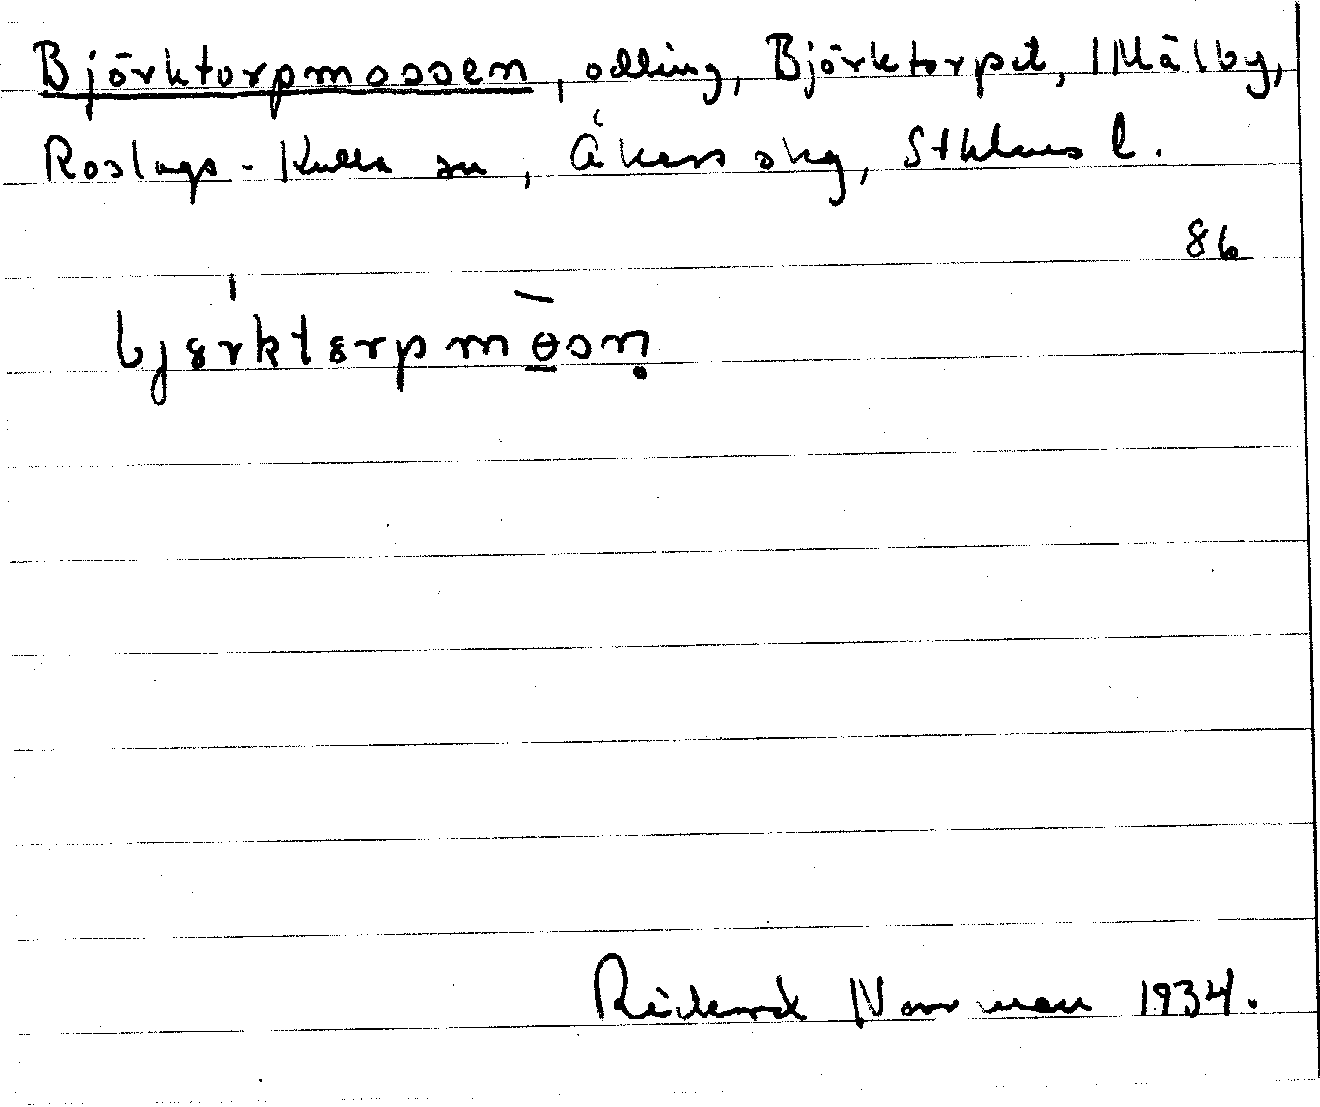 Björktorpmossen, odling, Björktorpet, Mälby,
Roslags-Kulla sn, Åkers skg, Sthlms l.
86
Rickard Norrman 1934.